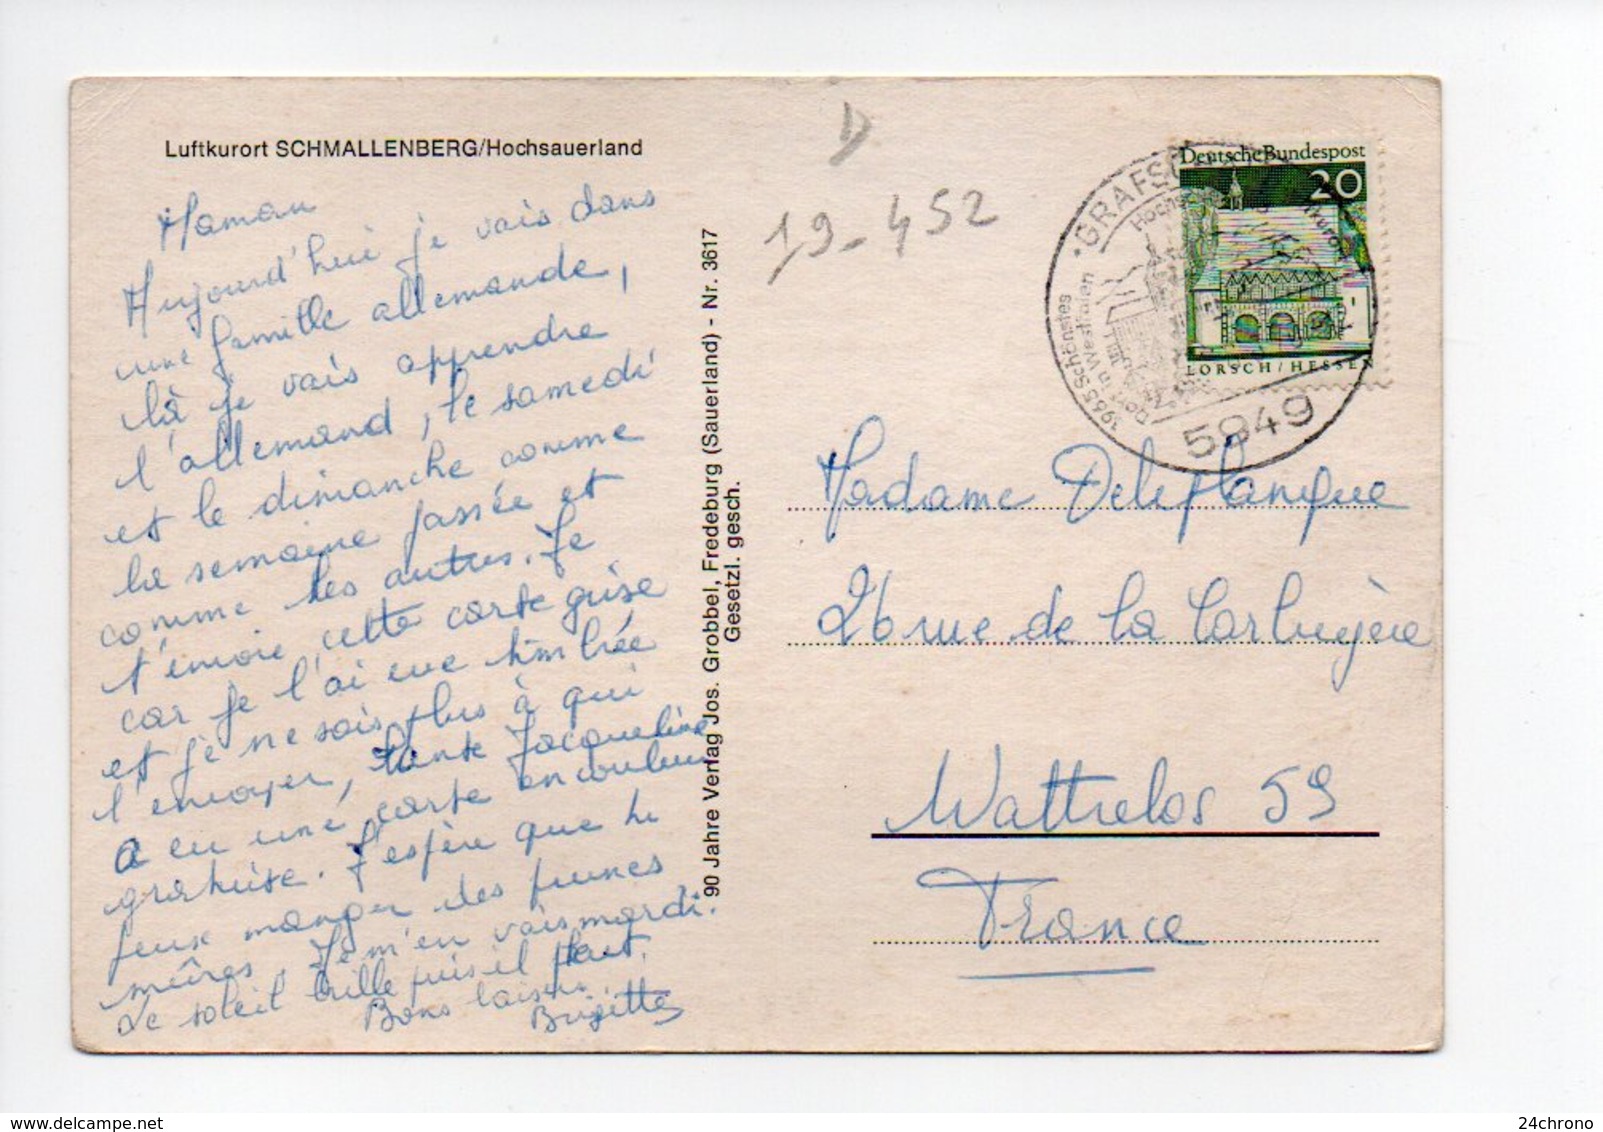 Luftkurort SCHMALLENBERG/Hochsauerland
Maman
Aujourd'hui je vais dans
une famille allemande,
là je vais apprendre
l'allemand, le samedi
et le dimanche comme
la semaine passée et
comme les autres. Je
t'envoie cette carte grise
car je l'ai eue timbrée
et je ne sais plus à qui
l'envoyer, tante Jacqueline
a eu une carte en couleur
gratuite. J'espère que tu
peux manger des prunes
mûres. Je m'en vais mardi.
Le soleil brille puis il pleut.
Bons baisers.
Brigitte
90 Jahre Verlag Jos. Grobbel, Fredeburg (Sauerland) - Nr. 3617
Gesetzl. gesch.
D
19-452
Deutsche Bundespost
20
LORSCH/HESSEN
GRAFSC
1965 Schönstes
Dorf in Westfalen
5949
Madame Deleplanque
26 rue de la Carluyère
Wattrelos 59
France
24chrono